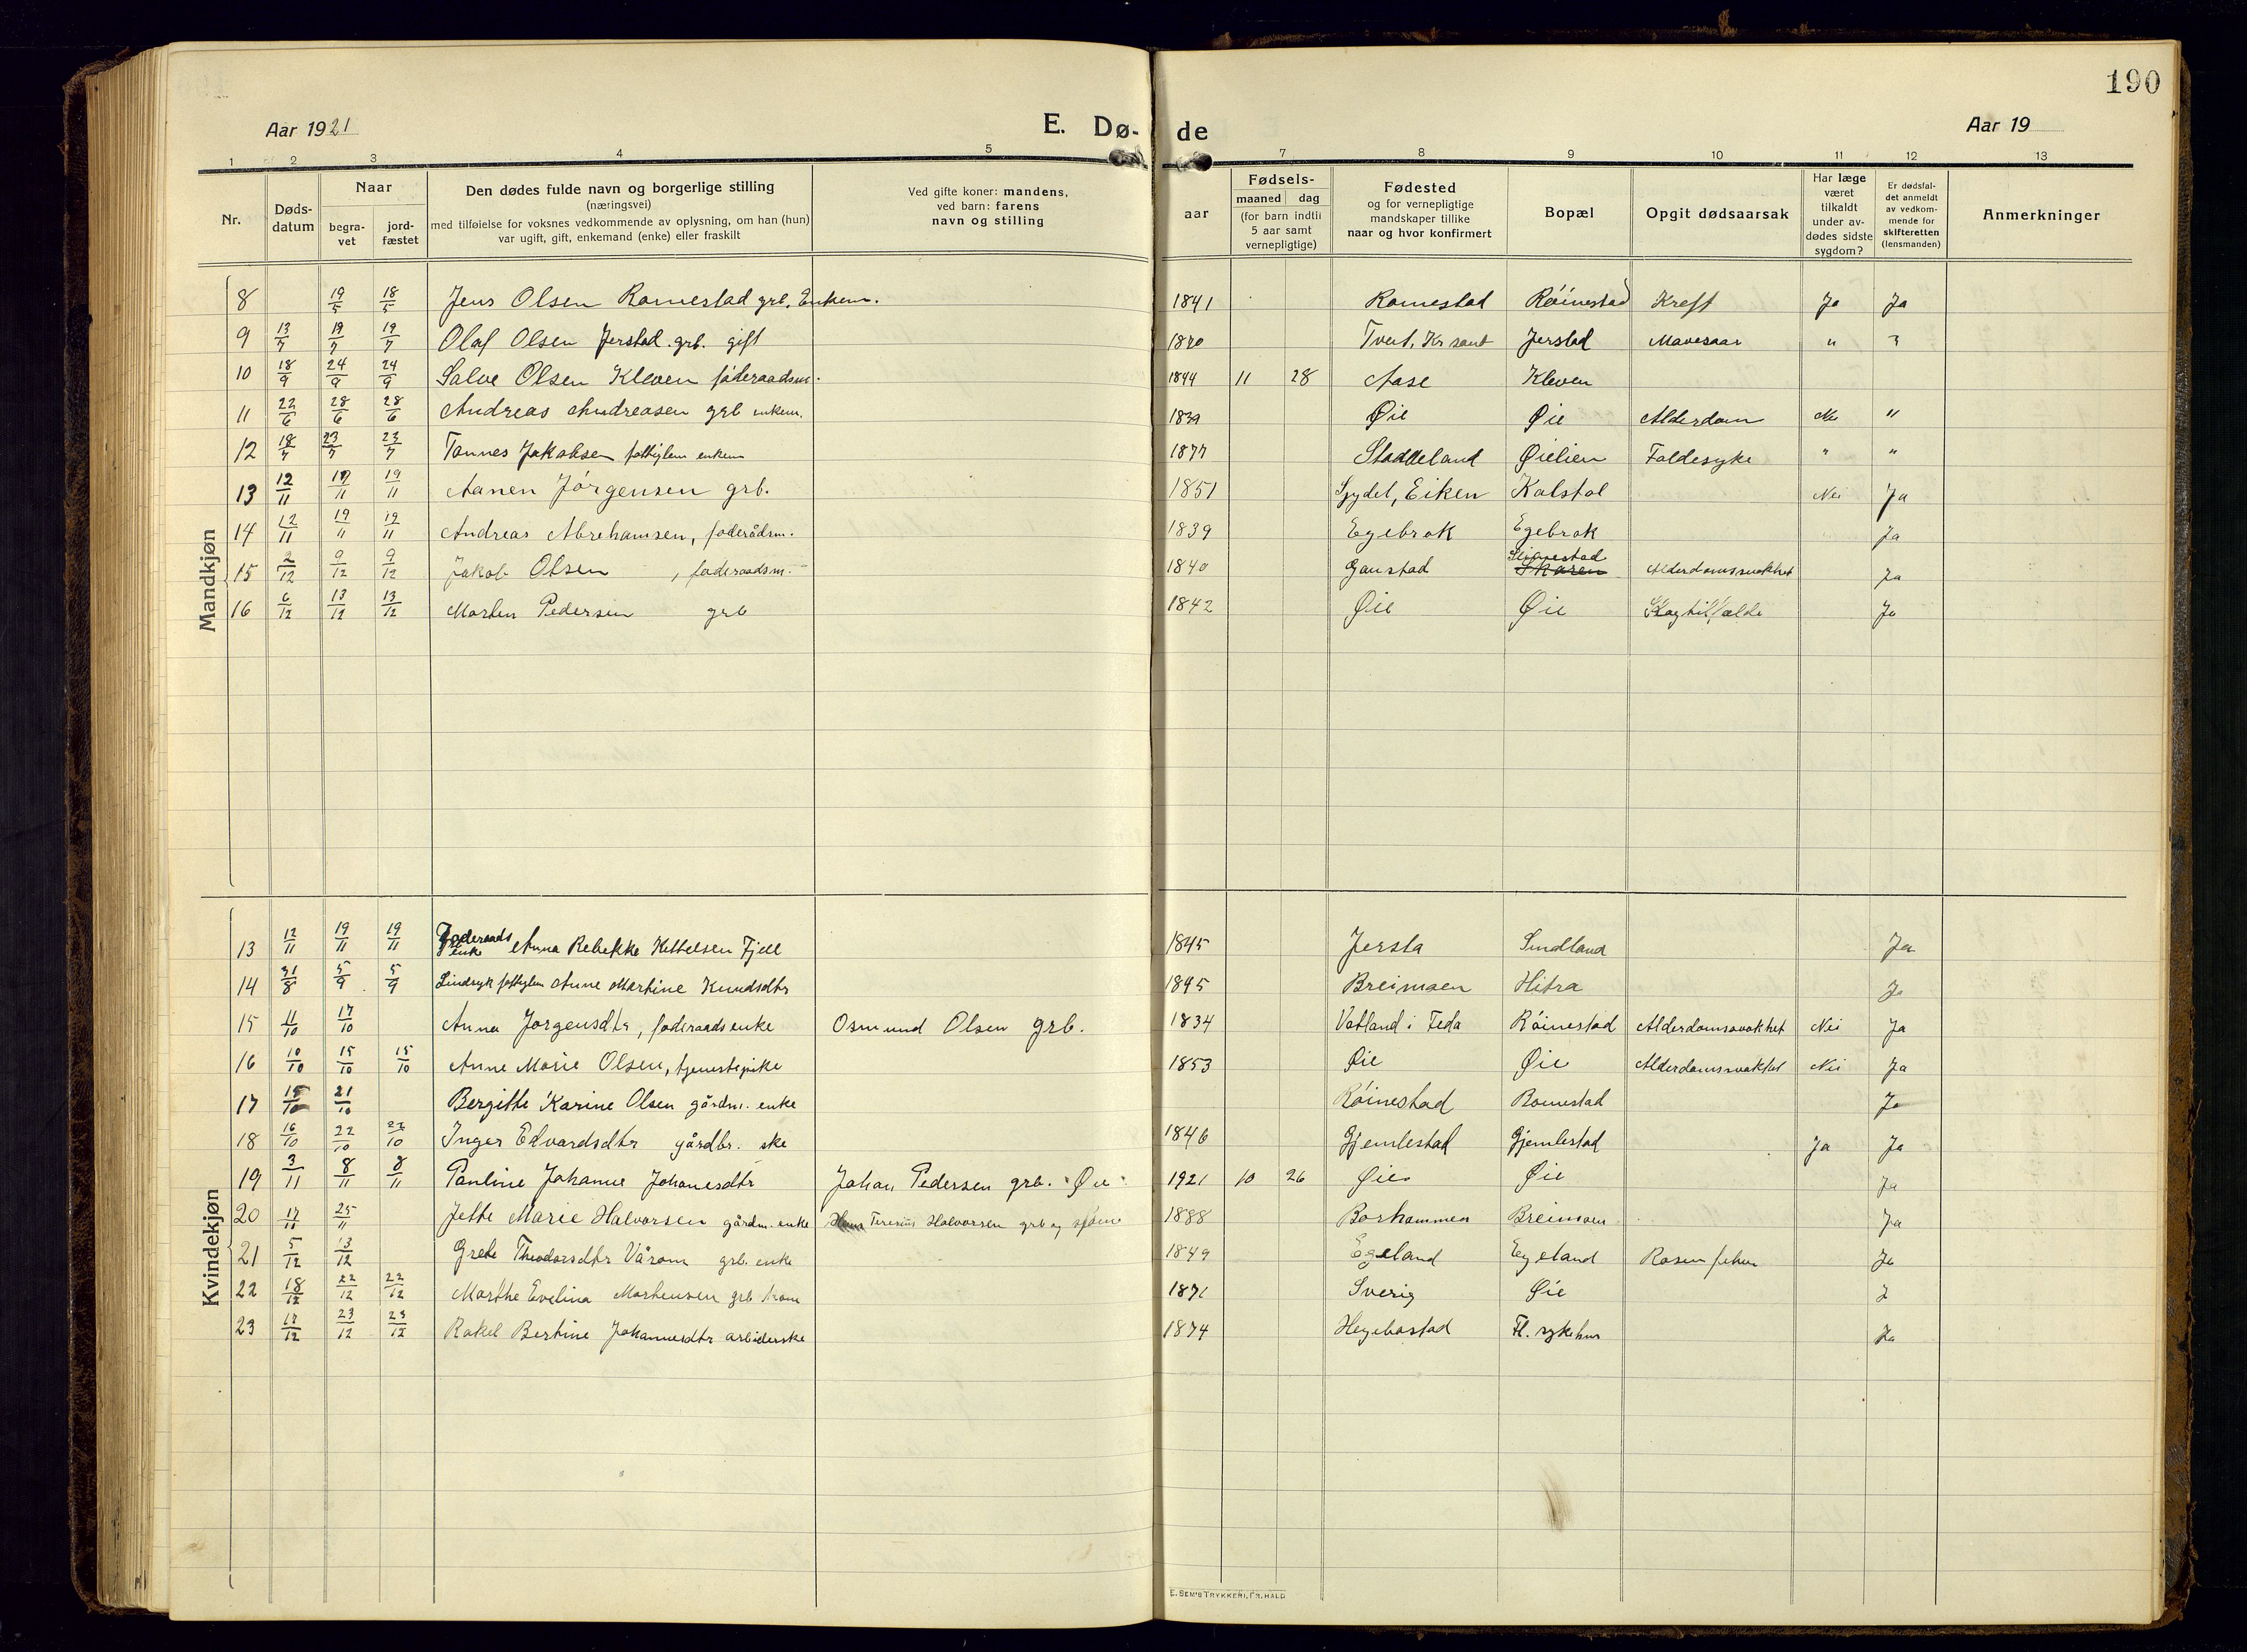 190
Aar 1921
E. Dø- de
Aar 19
1 2 3 4 5 7 8 9 10 11 12 13
Nr.
Døds-datum
Naar
begra-vet
jord-fæstet
Den dødes fulde navn og borgerlige stilling
(næringsvei)
med tilføielse for voksnes vedkommende av oplysning, om han (hun)
var ugift, gift, enkemand (enke) eller fraskilt
Ved gifte koner: mandens,
ved barn: farens
navn og stilling
aar
Fødsels-
maaned dag
(for barn indtil
5 aar samt
vernepligtige)
Fødested
og for vernepligtige
mandskaper tillike
naar og hvor konfirmert
Bopæl
Opgit dødsaarsak
Har læge
været
tilkaldt
under av-
dødes sidste
sygdom?
Er dødsfal-
det anmeldt
av vedkom-
mende for
skifteretten
(lensmanden)
Anmerkninger
Mandkjøn
8 19/5 18/5 Jens Olsen Romestad grb. Enkem. 1841 Romestad Röinestad Kreft Ja Ja
9 13/7 19/7 19/7 Olaf Olsen Jerstad grb. gift Tveit, Kr sand Jerstad Mavesaar "
10 18/9 24/9 24/9 Salve Olsen Kleven föderaadsm. 1844 11 28 Aase Kleven
11 22/6 28/6 28/6 Andreas Andreasen grb enkem. 1839 Øie Øie Alderdom Nei "
12 18/7 23/7 23/7 Tønnes Jakobsen fattiglem enkem 1877 Øielien Faldesyke " "
13 12/11 19/11 19/11 Aanen Jörgensen grb. 1851 Eiken Kalstol Nei Ja
14 12/11 19/11 19/11 Andreas Abrehamsen, foderådsm. 1839 Egebrok Egebrok Ja
15 2/12 9/12 9/12 Jakob Olsen, foderaadsm. 1840 Gaustad Skaren Alderdomssvakhet Ja
16 6/12 13/12 13/12 Morten Pedersen grb 1842 Øie Øie Slagtilfælde Ja
Kvindekjøn
13 12/11 19/11 19/11 Foderaads enke Anna Rebekke Kettelsen Fjell 1845 Jersta Sindland Ja
14 31/8 5/9 5/9 Sindsyk fattiglem Anne Martine Knudsdtr 1895 Breimoen Hitra Ja
15 11/10 17/10 Anna Jorgensdtr, foderaadsenke Osmund Olsen grb. 1834 Vatland i Feda Röinestad Alderdomssvakhet Nei Ja
16 10/10 15/10 15/10 Anne Marie Olsen, tjenestepike 1853 Øie Øie Alderdomssvakhet Nei Ja
17 15/10 21/10 Bergitte Karine Olsen gårdm. enke Röinestad Romestad Ja
18 16/10 22/10 22/10 Inger Edvardsdtr gårdbr. ske 1846 Gjemlestad Gjemlestad Ja Ja
19 3/11 8/11 8/11 Pauline Johanne Johanesdtr Johan Pedersen grb. Øie 1921 10 26 Øie Øie Ja
20 17/11 25/11 Jette Marie Halvorsen gårdm. enke Teresius Halvorsen grb og 1888 Borhammen Breimoen Ja
21 5/12 13/12 Grete Theodorsdtr Vårom grb. enke 1849 Egeland Egeland Rosen Ja
22 18/12 22/12 22/12 Marthe Evelina Mortensen grb kone 1871 Sverig Øie
23 17/12 23/12 23/12 Rakel Bertine Johannesdtr arbiderske 1874 Hegebostad Fl. sykehus Ja
E. SEM'S TRYKKERI, FR.HALD